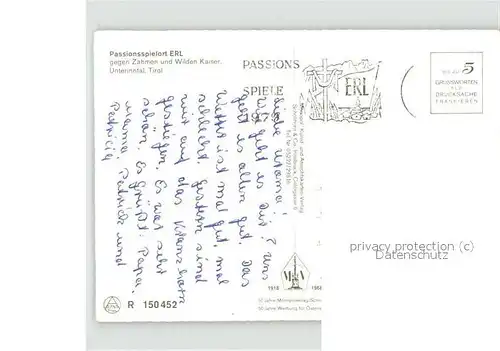 Passionsspielort ERL
gegen Zahmen und Wilden Kaiser,
Unterinntal, Tirol
PASSIONS
SPIELE
1979
ERL
5
GRUSSWORTEN
FÜR
DRUCKSACHE
FRANKIEREN
Liebe Utama!
Wie geht es Dir? Uns
geht es allen gut. Das
Wetter ist mal gut, mal
schlecht. Gestern sind
wir auf das Kranzhorn
gestiegen. Es war sehr
schön. Es grüßt: Papa,
Mama, Patrick und
Patricia
privacy protection (c)
Datenschutz
R 150452